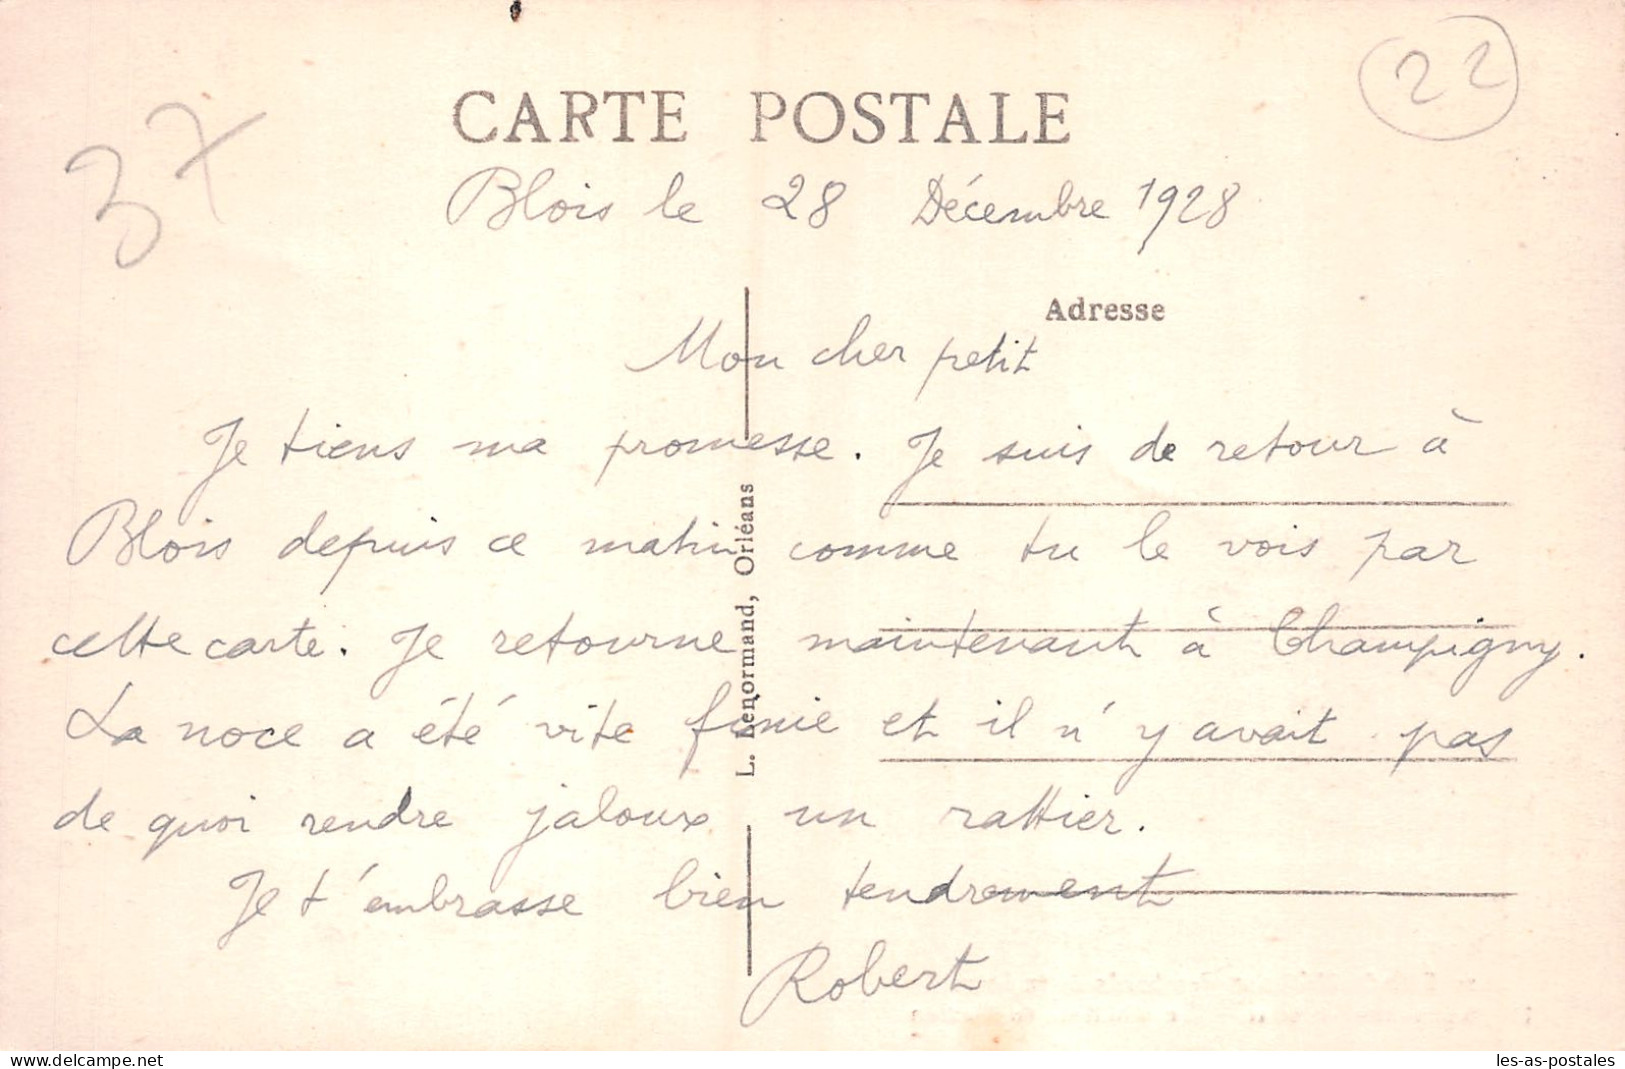 37
22
CARTE POSTALE
Blois le 28 Décembre 1928
Adresse
Mon cher petit
Je tiens ma promesse. Je suis de retour à
Blois depuis ce matin comme tu le vois par
cette carte. Je retourne maintenant à Champigny.
La noce a été vite finie et il n'y avait pas
de quoi rendre jaloux un rattier.
Je t'embrasse bien tendrement
Robert
L. Lenormand, Orléans
www.delcampe.net
les-as-postales